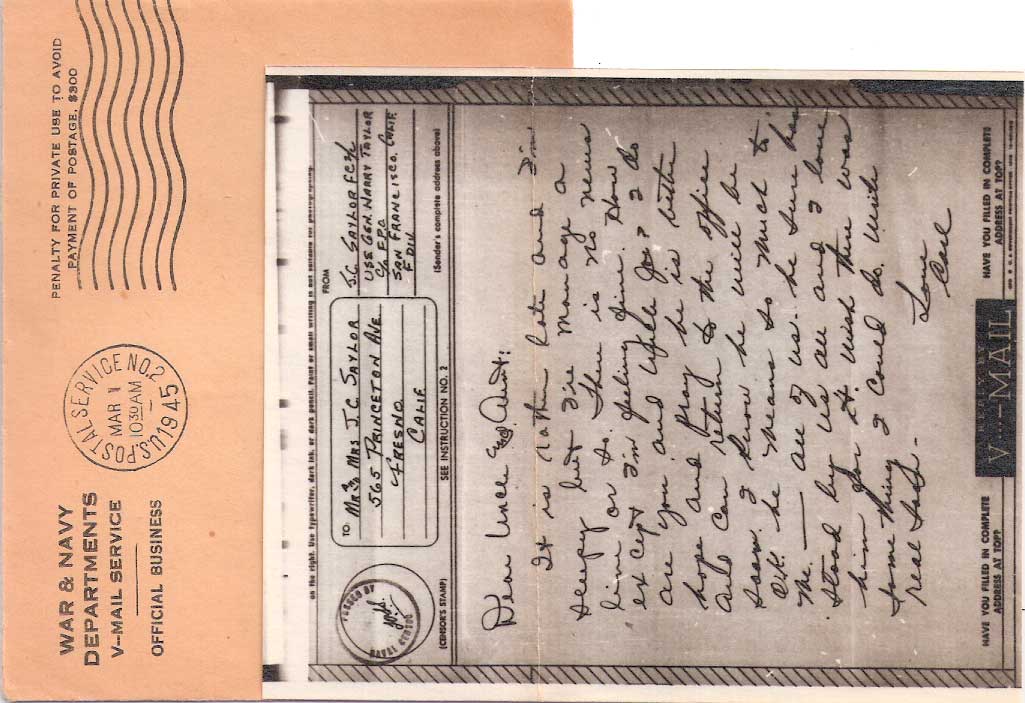 WAR & NAVY
DEPARTMENTS
V-MAIL SERVICE
OFFICIAL BUSINESS
U.S. POSTAL SERVICE NO. 2
MAR 1
10 30 AM
1945
PENALTY FOR PRIVATE USE TO AVOID
PAYMENT OF POSTAGE, $300
on the right. Use typewriter, dark ink, or dark pencil. Faint or small writing is not suitable for photographing.
PASSED BY
NAVAL CENSOR
(CENSOR'S STAMP)
TO
Mr & Mrs J.C. SAYLOR
565 PRINCETON AVE
FRESNO
CALIF
SEE INSTRUCTION NO. 2
FROM
J.C. SAYLOR F.C. 3/c
USS GEN. HARRY TAYLOR
C/o F.P.O.
SAN FRANCISCO, CALIF
F DIV
(Sender's complete address above)
Dear Uncle & Aunt:
It is rather late and I'm
sleepy but I'll manage a
line or so. There is no news
except I'm feeling fine. How
are you and Uncle Joe? I do
hope and pray he is better
and can return to the office
soon. I know he will be
O.K. he means so much to
me. — all of us. he sure has
stood by us all and I love
him for it. Wish there was
some thing I could do. Wish
real hard.
Love
Carl
HAVE YOU FILLED IN COMPLETE
ADDRESS AT TOP?
V···—MAIL
HAVE YOU FILLED IN COMPLETE
ADDRESS AT TOP?